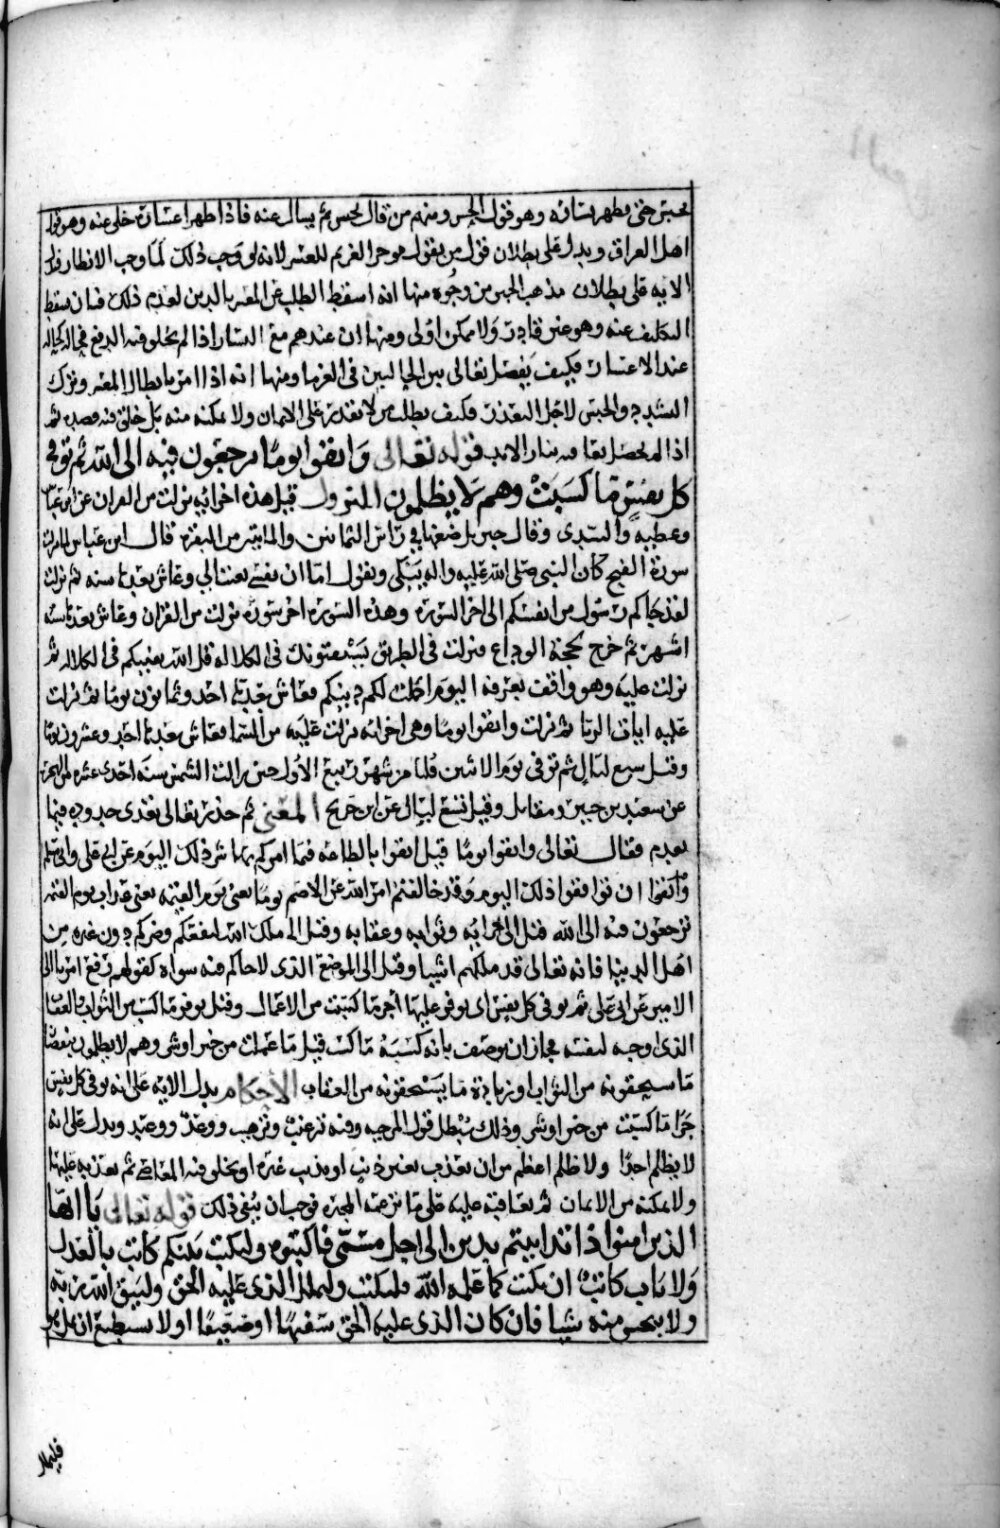 يحبس حتى يظهر يساره وهو قول الحسن ومنهم من قال يحبس ثم يسال عنه فاذا ظهر اعساره خلي عنه وهو قول
اهل العراق ويدل على بطلان قول من يقول يوجر الغريم للعسر لانه لو وجب ذلك لما وجب الانظار ويدل
الايه على بطلان مذهب الجبر من وجوه منها انه اسقط الطلب عن المعسر بالدين لعدم ذلك فبان يسقط
التكليف عنه وهو غير قادر ولا ممكن اولى ومنها ان عندهم مع اليسار اذا لم يخلق فيه الدفع فحاله كحاله
عند الاعسار فكيف يفصل تعالى بين الحالين في الغرما ومنها انه اذا امر بابطال المعسر وترك
التشديد والحبس لاجل التعذر فكيف يطلب من لا يقدر على الايمان ولا يمكنه منه بل خلق فيه ضده ثم
اذا لم يحصل يعاقبه بنار الابد قوله تعالى واتقوا يوما ترجعون فيه الى الله ثم توفى
كل نفس ما كسبت وهم لا يظلمون النزول قيل هذه اخر ايه نزلت من القران عن ابن عباس
وعطيه والسدي وقال جبريل ضعها في راس الثمانين والمايتين من البقره قال ابن عباس لما نزلت
سورة الفتح كان النبي صلى الله عليه واله يبكي ويقول اما ان نفسي نعت الي وعاش بعدها سنه ثم نزلت
لقد جاكم رسول من انفسكم الى اخر السوره وهذه السوره اخر سورة نزلت من القران وعاش بعدها سته
اشهر ثم خرج لحجة الوداع فنزلت في الطريق يستفتونك في الكلاله قل الله يفتيكم في الكلاله ثم
نزلت عليه وهو واقف بعرفه اليوم اكملت لكم دينكم فعاش بعدها احد وثمانون يوما ثم نزلت
عليه ايات الربا ثم نزلت واتقوا يوما وهي اخر ايه نزلت عليه من السما فعاش بعدها احد وعشرون يوما
وقيل سبع ليال ثم توفي يوم الاثنين من شهر ربيع الاول حين زالت الشمس سنه احدى عشره من الهجره
عن سعيد بن جبير ومقاتل وقيل تسع ليال عن ابن جريج المعنى ثم حذر تعالى تعدي حدوده فيما
تقدم فقال تعالى واتقوا يوما قيل اتقوا بالطاعه فيما امركم به ذلك اليوم عن ابي علي وابي مسلم
واتقوا ان توافقوا ذلك اليوم وقد خالفتم امر الله عن الاصم يوما يعني يوم القيمه يعني عذاب يوم القيمه
ترجعون فيه الى الله قيل الى جزايه وثوابه وعقابه وقيل الى ملك الله لنفعكم وضركم دون غيره من
اهل الدنيا فانه تعالى قد ملكهم اشيا وقيل الى الموضع الذي لا حاكم فيه سواه كقولهم رفع امرنا الى
الامير عن ابي علي ثم توفى كل نفس اي يوفر عليها اجر ما كسبت من الاعمال وقيل توفر ما كسبت من الثواب والعقاب
الذي وجب لنفسه فجاز ان يوصف بانه كسبه ما كسبت قيل ما عملت من خير او شر وهم لا يظلمون بنقصان
ما يستحقونه من الثواب او زيادة ما يستحقونه من العقاب الاحكام يدل الايه على انه يوفى كل نفس
جزا ما كسبت من خير او شر وذلك يبطل قول المرجيه وفيه ترغيب وترهيب ووعد ووعيد ويدل على انه
لا يظلم احدا ولا ظلم اعظم من ان يعذب بغير ذنب او بذنب غيره او يخلق فيه المعاصي ثم يعذبه عليها
ولا يمكنه من الايمان ثم يعاقبه عليه على ما تزعمه المجبره فوجب ان ينفى ذلك قوله تعالى يا ايها
الذين امنوا اذا تداينتم بدين الى اجل مسمى فاكتبوه وليكتب بينكم كاتب بالعدل
ولا ياب كاتب ان يكتب كما علمه الله فليكتب وليملل الذي عليه الحق وليتق الله ربه
ولا يبخس منه شيا فان كان الذي عليه الحق سفيها او ضعيفا او لا يستطيع ان يمل هو
فليملل